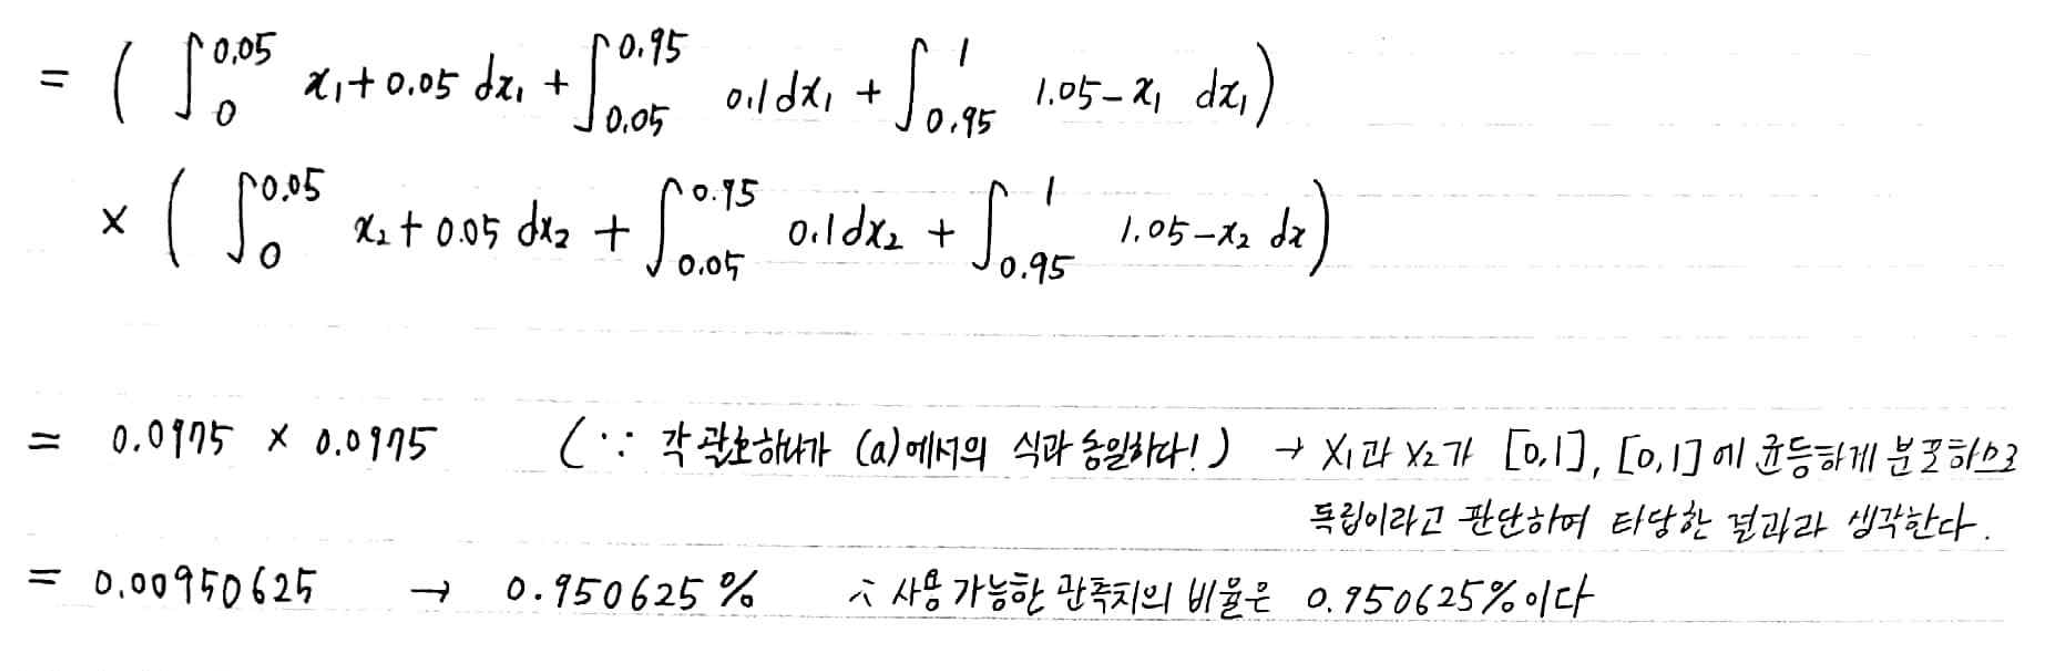 = ( ∫₀^0.05 x₁+0.05 dx₁ + ∫₀.₀₅^0.95 0.1dx₁ + ∫₀.₉₅^1 1.05-x₁ dx₁)
× ( ∫₀^0.05 x₂+0.05 dx₂ + ∫₀.₀₅^0.95 0.1dx₂ + ∫₀.₉₅^1 1.05-x₂ dx)
= 0.0975 × 0.0975 (∵ 각 괄호하나가 (a)에서의 식과 동일하다!) → X₁과 X₂가 [0,1], [0,1]에 균등하게 분포하므로
독립이라고 판단하여 타당한 결과라 생각한다.
= 0.00950625 → 0.950625% ∴ 사용 가능한 관측치의 비율은 0.950625%이다